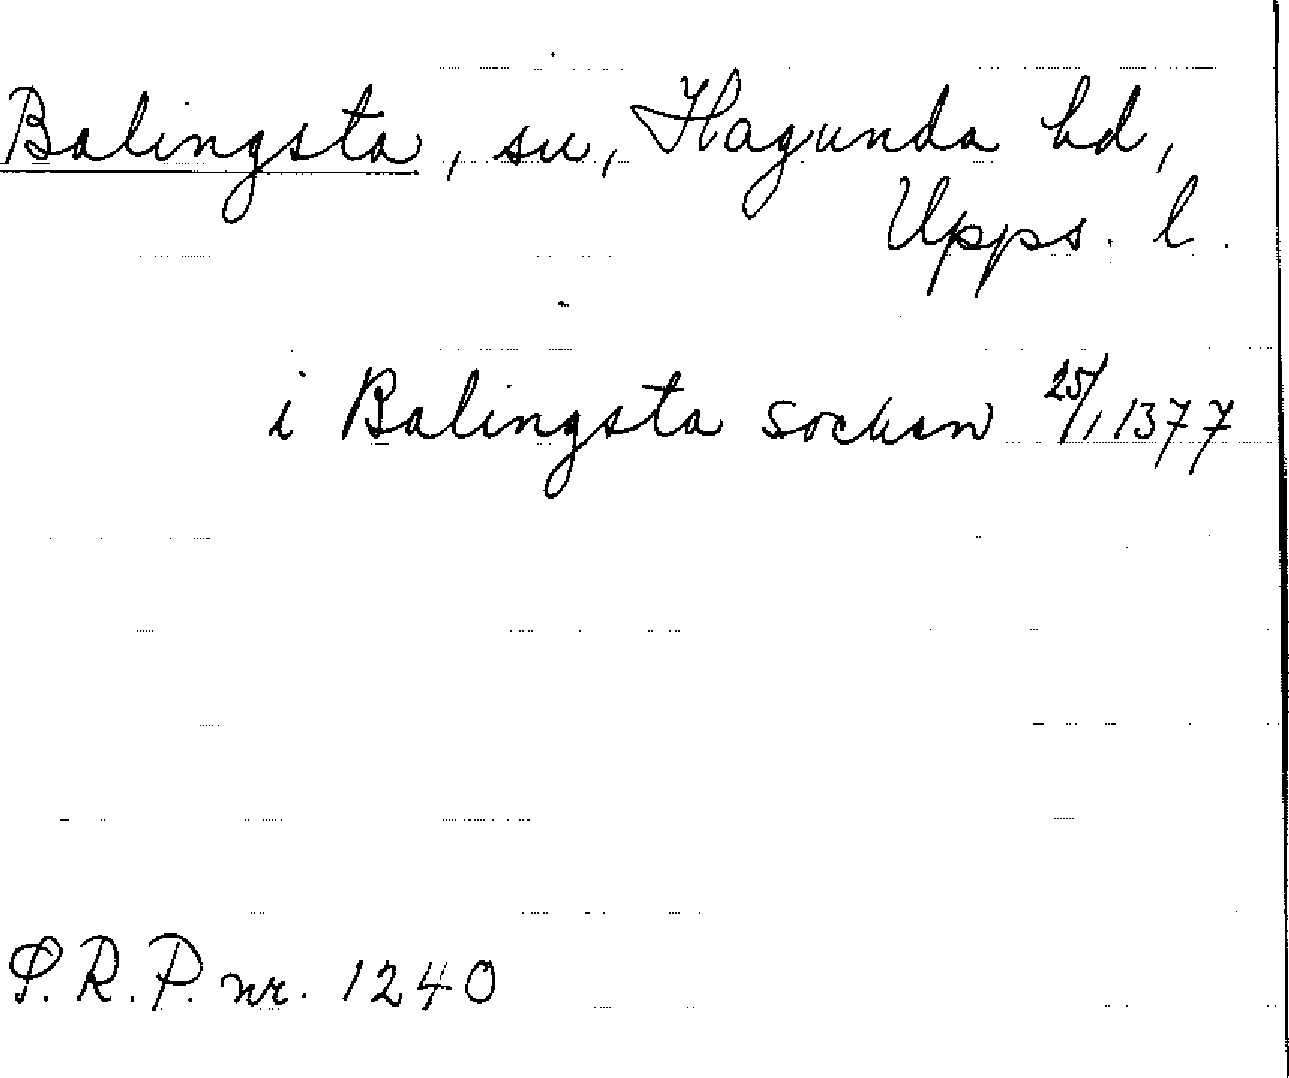 Balingsta, sn, Hagunda hd,
Upps. l.
i Balingsta socksn 25/1 1377
S.R.P. nr. 1240